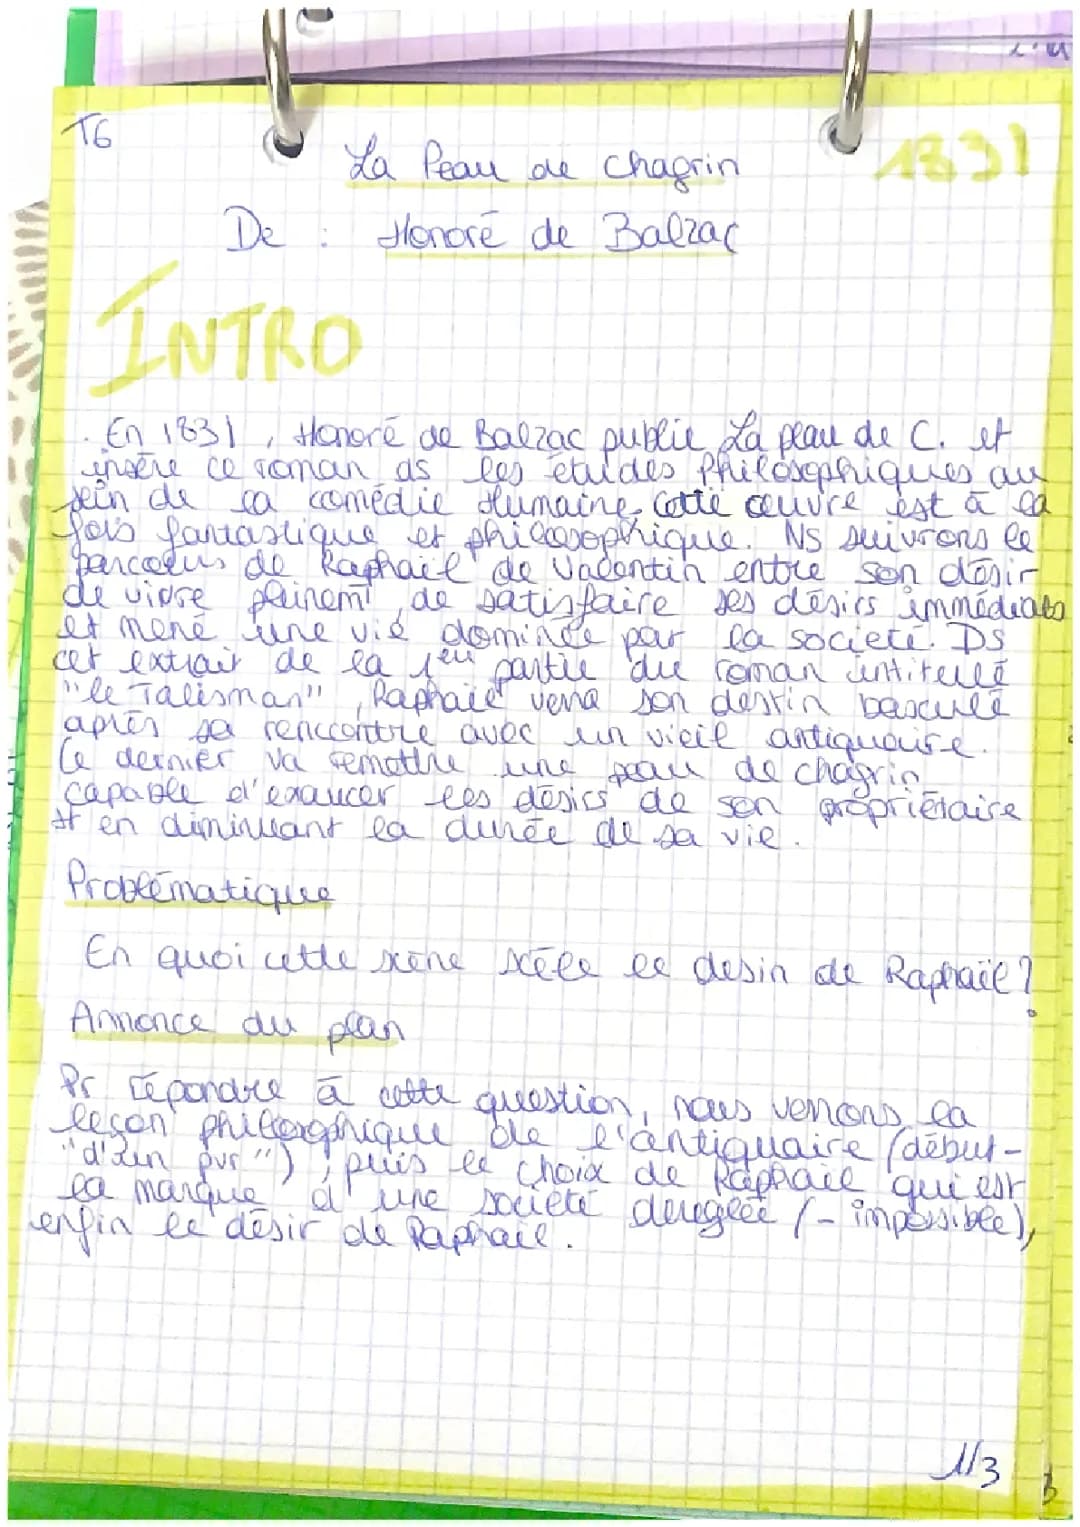 T6
1831
La Peau de Chagrin
De : Honoré de Balzac
INTRO
. En 1831, Honoré de Balzac publie La peau de C. et
insère ce roman ds les études Philosophiques au
sein de la comédie Humaine. Cette œuvre est à la
fois fantastique et philosophique. Ns suivrons le
parcours de Raphaël de Valentin entre son désir
de vivre pleinemt, de satisfaire ses désirs immédiats
et mené une vie dominée par la société. Ds
cet extrait de la 1eu partie du roman intitulé
"le Talisman", Raphaël verra son destin basculé
après sa rencontre avec un vieil antiquaire.
Ce dernier va remettre une peau de chagrin
capable d'exaucer les désirs de son propriétaire
tt en diminuant la durée de sa vie.
Problématique
En quoi cette scène scèle le desin de Raphaël ?
Annonce du plan
Pr répondre à cette question, nous verrons la
leçon philosophique de l'antiquaire (début-
"d'un pur"), puis le choix de Raphaël qui est
la marque d'une société dereglée (- impossible),
enfin le désir de Raphaël.
1/3